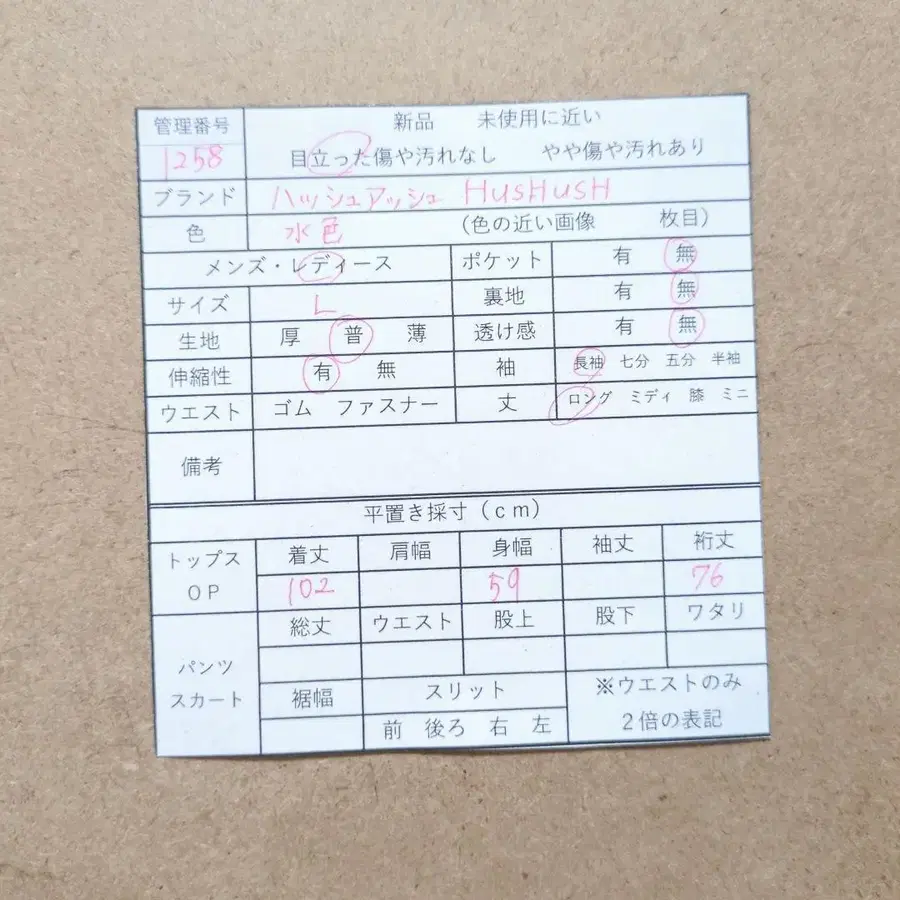 管理番号 新品 未使用に近い
1258 目立った傷や汚れなし やや傷や汚れあり
ブランド ハッシュアッシュ HusHusH
色 水色 (色の近い画像 枚目)
メンズ・レディース ポケット 有 無
サイズ L 裏地 有 無
生地 厚 普 薄 透け感 有 無
伸縮性 有 無 袖 長袖 七分 五分 半袖
ウエスト ゴム ファスナー 丈 ロング ミディ 膝 ミニ
備考
平置き採寸(cm)
トップス 着丈 肩幅 身幅 袖丈 裄丈
OP 102 59 76
総丈 ウエスト 股上 股下 ワタリ
パンツ
スカート 裾幅 スリット ※ウエストのみ
前 後ろ 右 左 2倍の表記